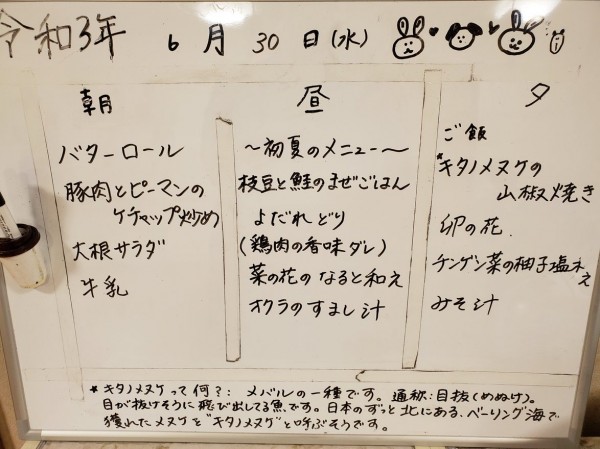 令和3年 6月30日(水)
朝
バターロール
豚肉とピーマンの
ケチャップ炒め
大根サラダ
牛乳
昼
〜初夏のメニュー〜
枝豆と鮭のまぜごはん
よだれどり
(鶏肉の香味ダレ)
菜の花のなると和え
オクラのすまし汁
夕
ご飯
*キタノメヌケの
山椒焼き
卯の花
チンゲン菜の柚子塩和え
みそ汁
*キタノメヌケって何?: メバルの一種です。通称:目抜(めぬけ)。
目が抜けそうに飛び出してる魚です。日本のずっと北にある、ベーリング海で
獲れたメヌケを"キタノメヌケ"と呼ぶそうです。